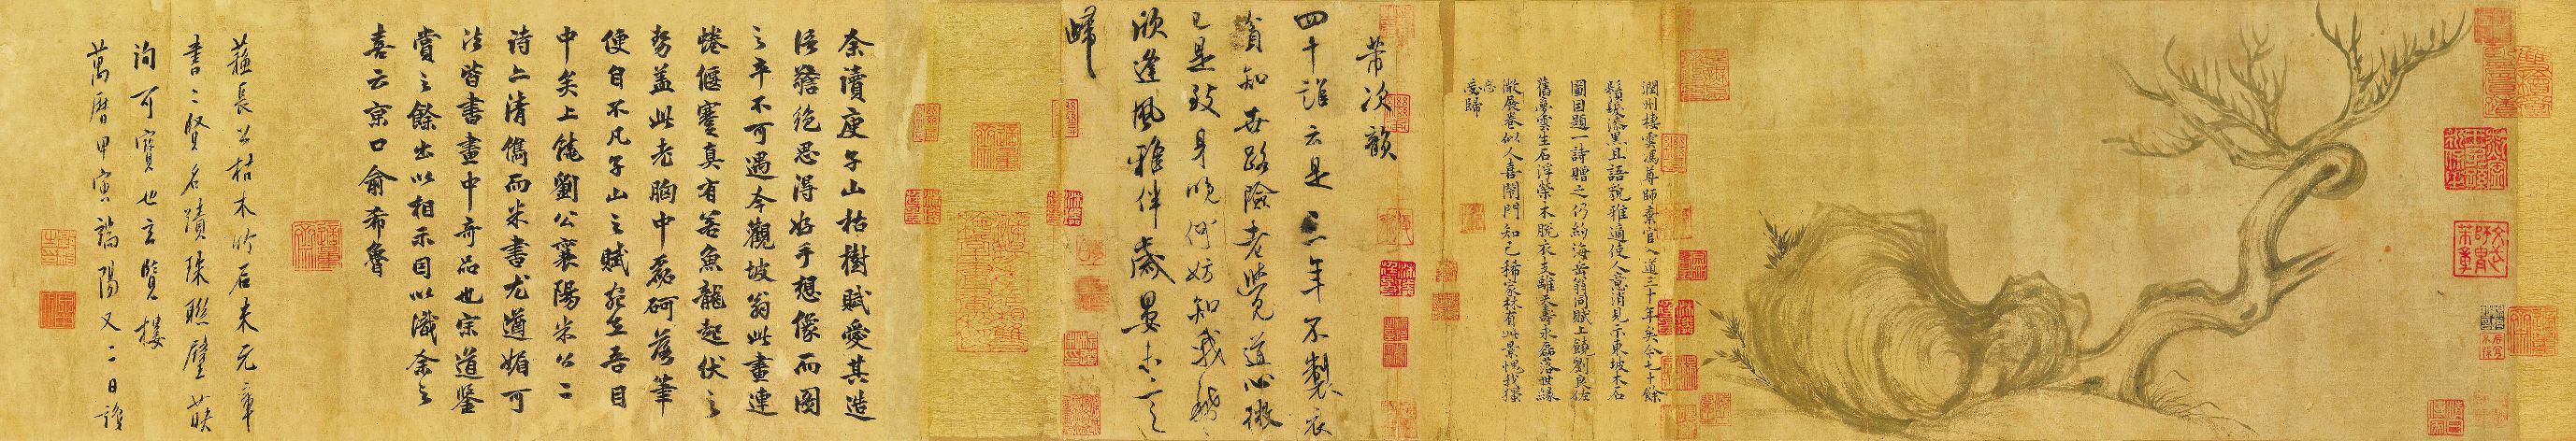 潤州棲雲馮尊師棄官入道三十年矣今七十餘
鬚髮漆黑且語貌雅適使人意消見示東坡木石
圖因題一詩贈之仍約海岳翁同賦上饒劉良佐
舊夢雲生石浮榮木脫衣支離天壽永磊落世緣
微展卷似人喜閉門知己稀家林有此景愧我獨
忘歸
芾次韻
四十誰云是三年不製衣
貧知世路險老覺道心微
已是致身晚何妨知我稀
欣逢風雅伴歲晏未言
歸
余讀庾子山枯樹賦愛其造
語警絕思得好手想像而圖
之卒不可遇今觀坡翁此畫連
蜷偃蹇真有若魚龍起伏之
勢蓋此老胸中磊砢落筆
便自不凡子山之賦宛在吾目
中矣上饒劉公襄陽米公二
詩亦清儁而米書尤遒媚可
法皆書畫中奇品也宗道鑒
賞之餘出以相示因以識余之
喜云京口俞希魯
蘇長公枯木竹石米元章
書二賢名蹟珠聯璧英
洵可寶也玄覽樓
萬曆甲寅端陽又二日